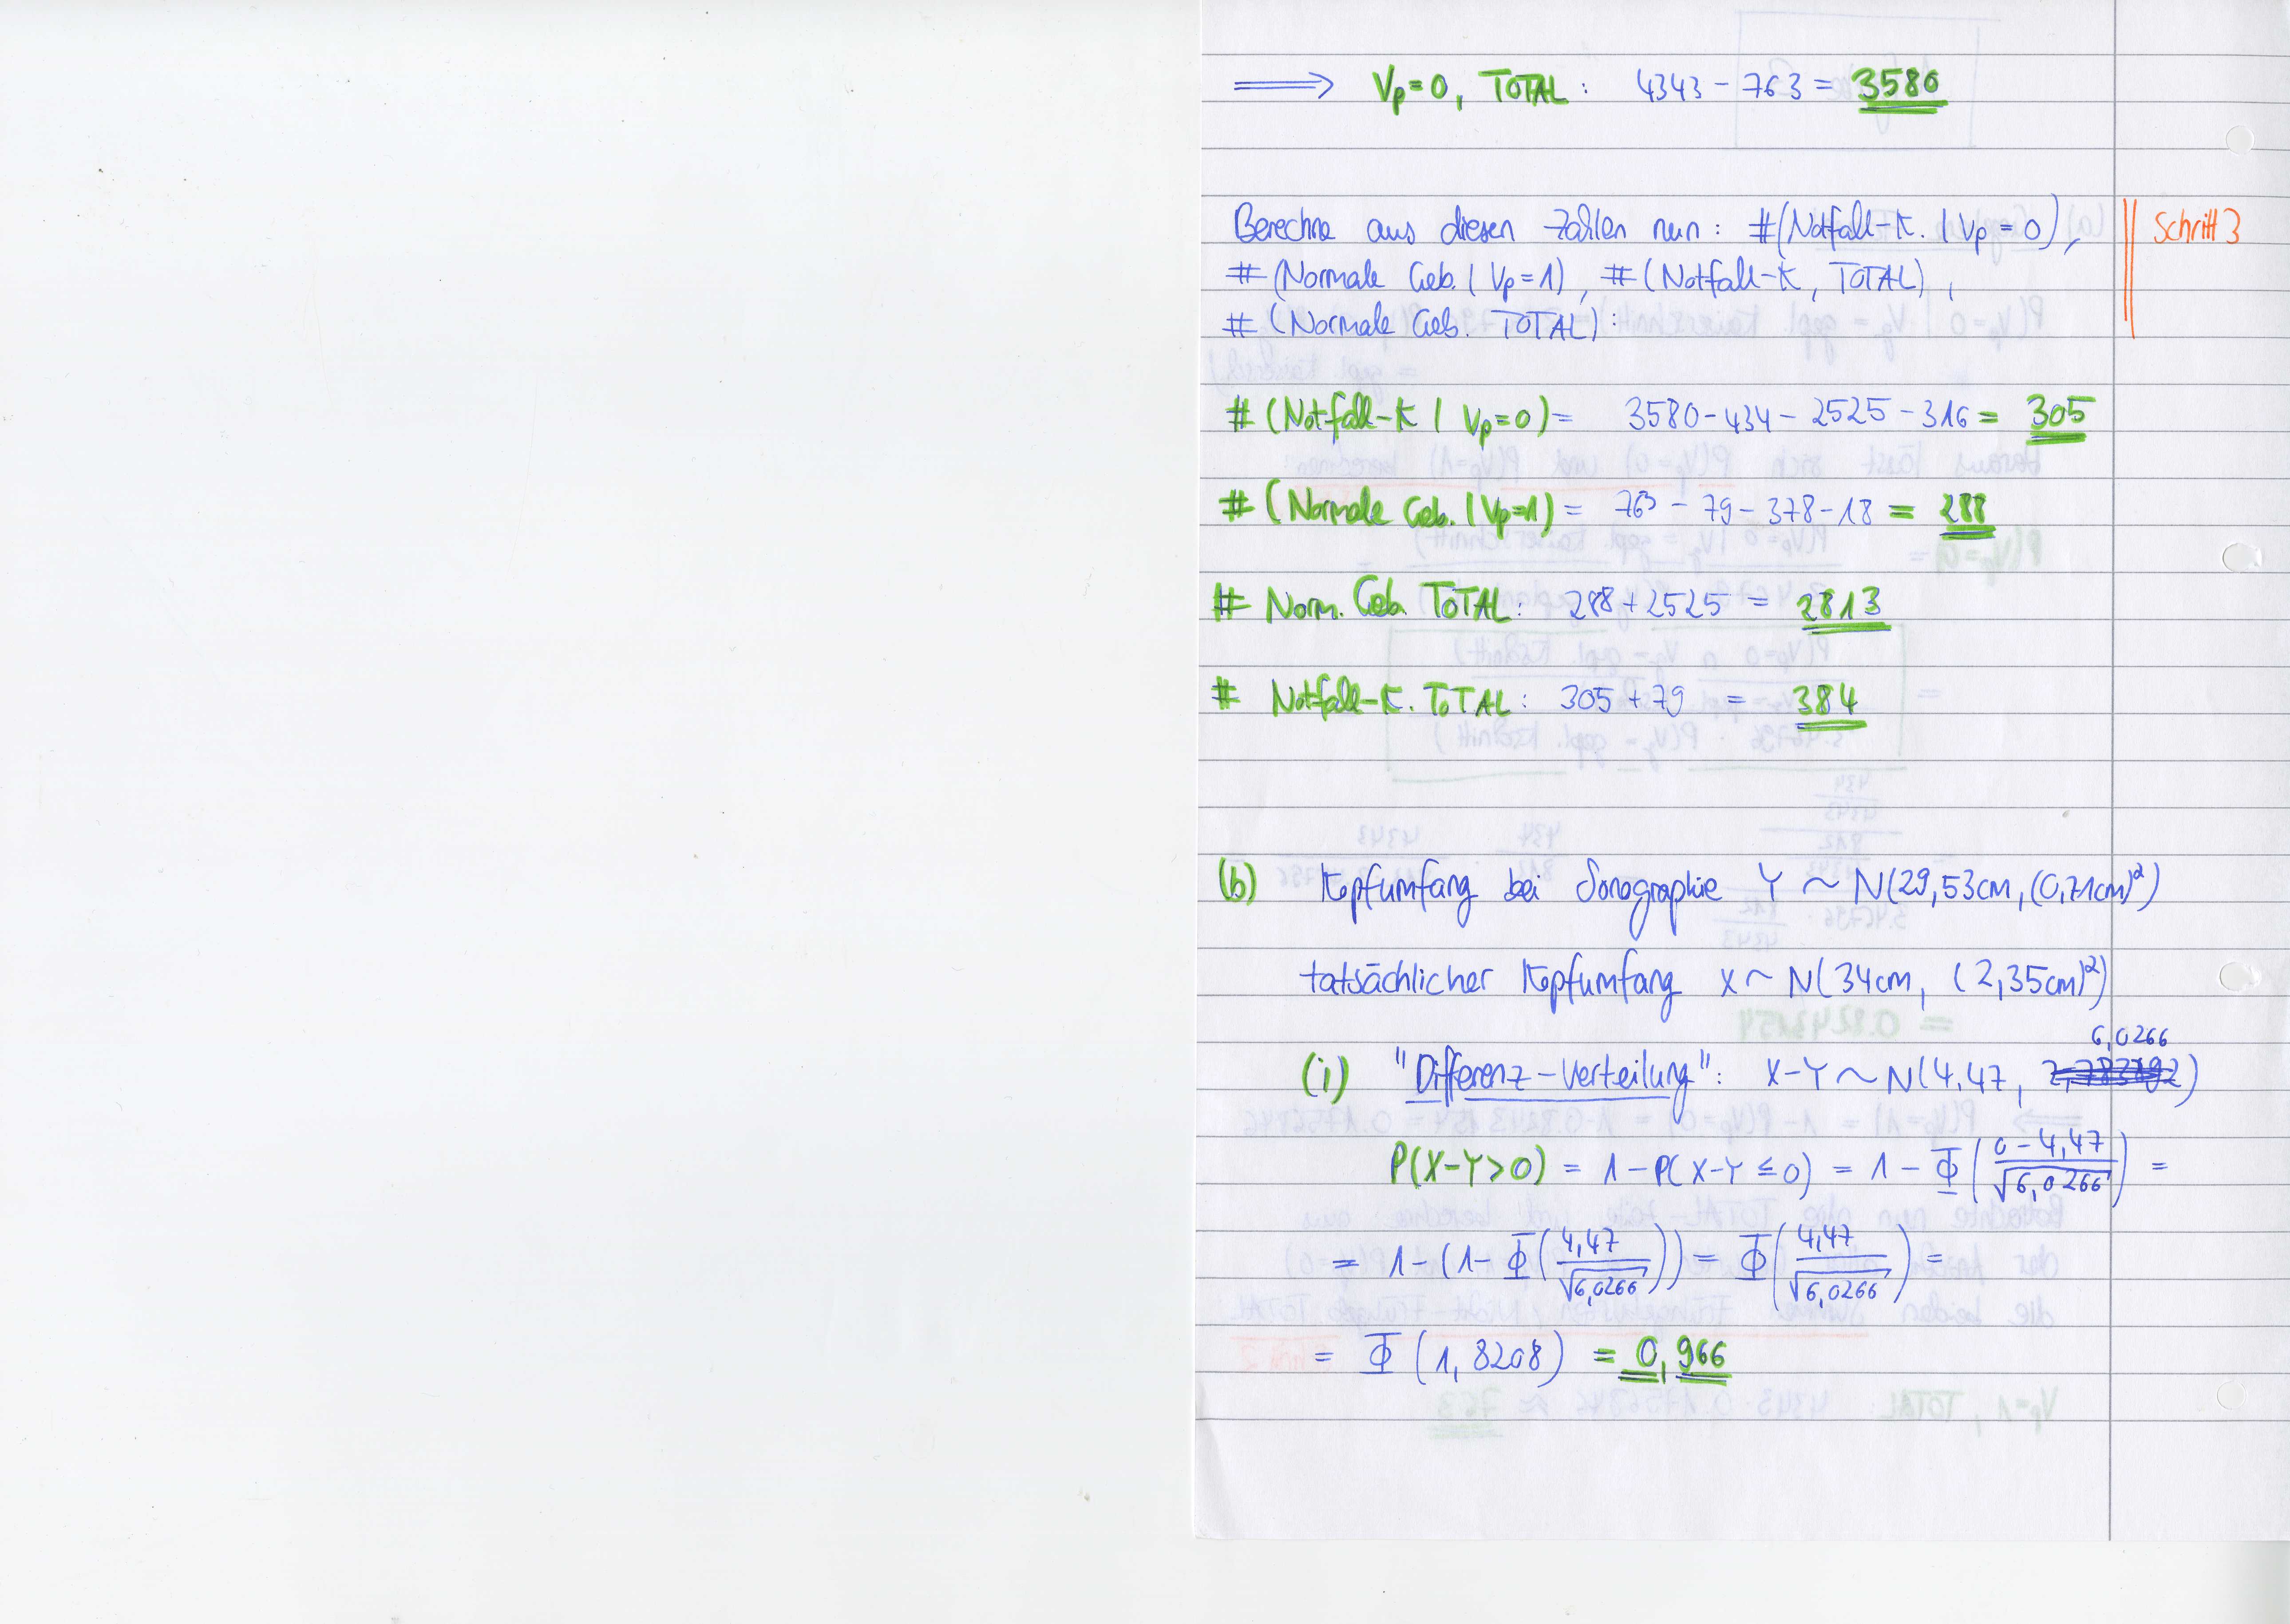 ⟹ Vp=0, TOTAL: 4343 - 763 = 3580
Berechne aus diesen Zahlen nun: #(Notfall-K. | Vp = 0),
#(Normale Geb. | Vp=1), #(Notfall-K, TOTAL),
#(Normale Geb. TOTAL):
Schritt 3
#(Notfall-K | Vp=0) = 3580 - 434 - 2525 - 316 = 305
#(Normale Geb. | Vp=1) = 763 - 79 - 378 - 18 = 288
# Norm. Geb. TOTAL: 288 + 2525 = 2813
# Notfall-K. TOTAL: 305 + 79 = 384
(b) Kopfumfang bei Sonographie Y ~ N(29,53cm, (0,71cm)²)
tatsächlicher Kopfumfang X ~ N(34cm, (2,35cm)²)
(i) "Differenz-Verteilung": X-Y ~ N(4,47, 6,0266)
P(X-Y>0) = 1 - P(X-Y ≤ 0) = 1 - Φ((0 - 4,47)/√6,0266) =
= 1 - (1 - Φ(4,47/√6,0266)) = Φ(4,47/√6,0266) =
= Φ(1,8208) = 0,966